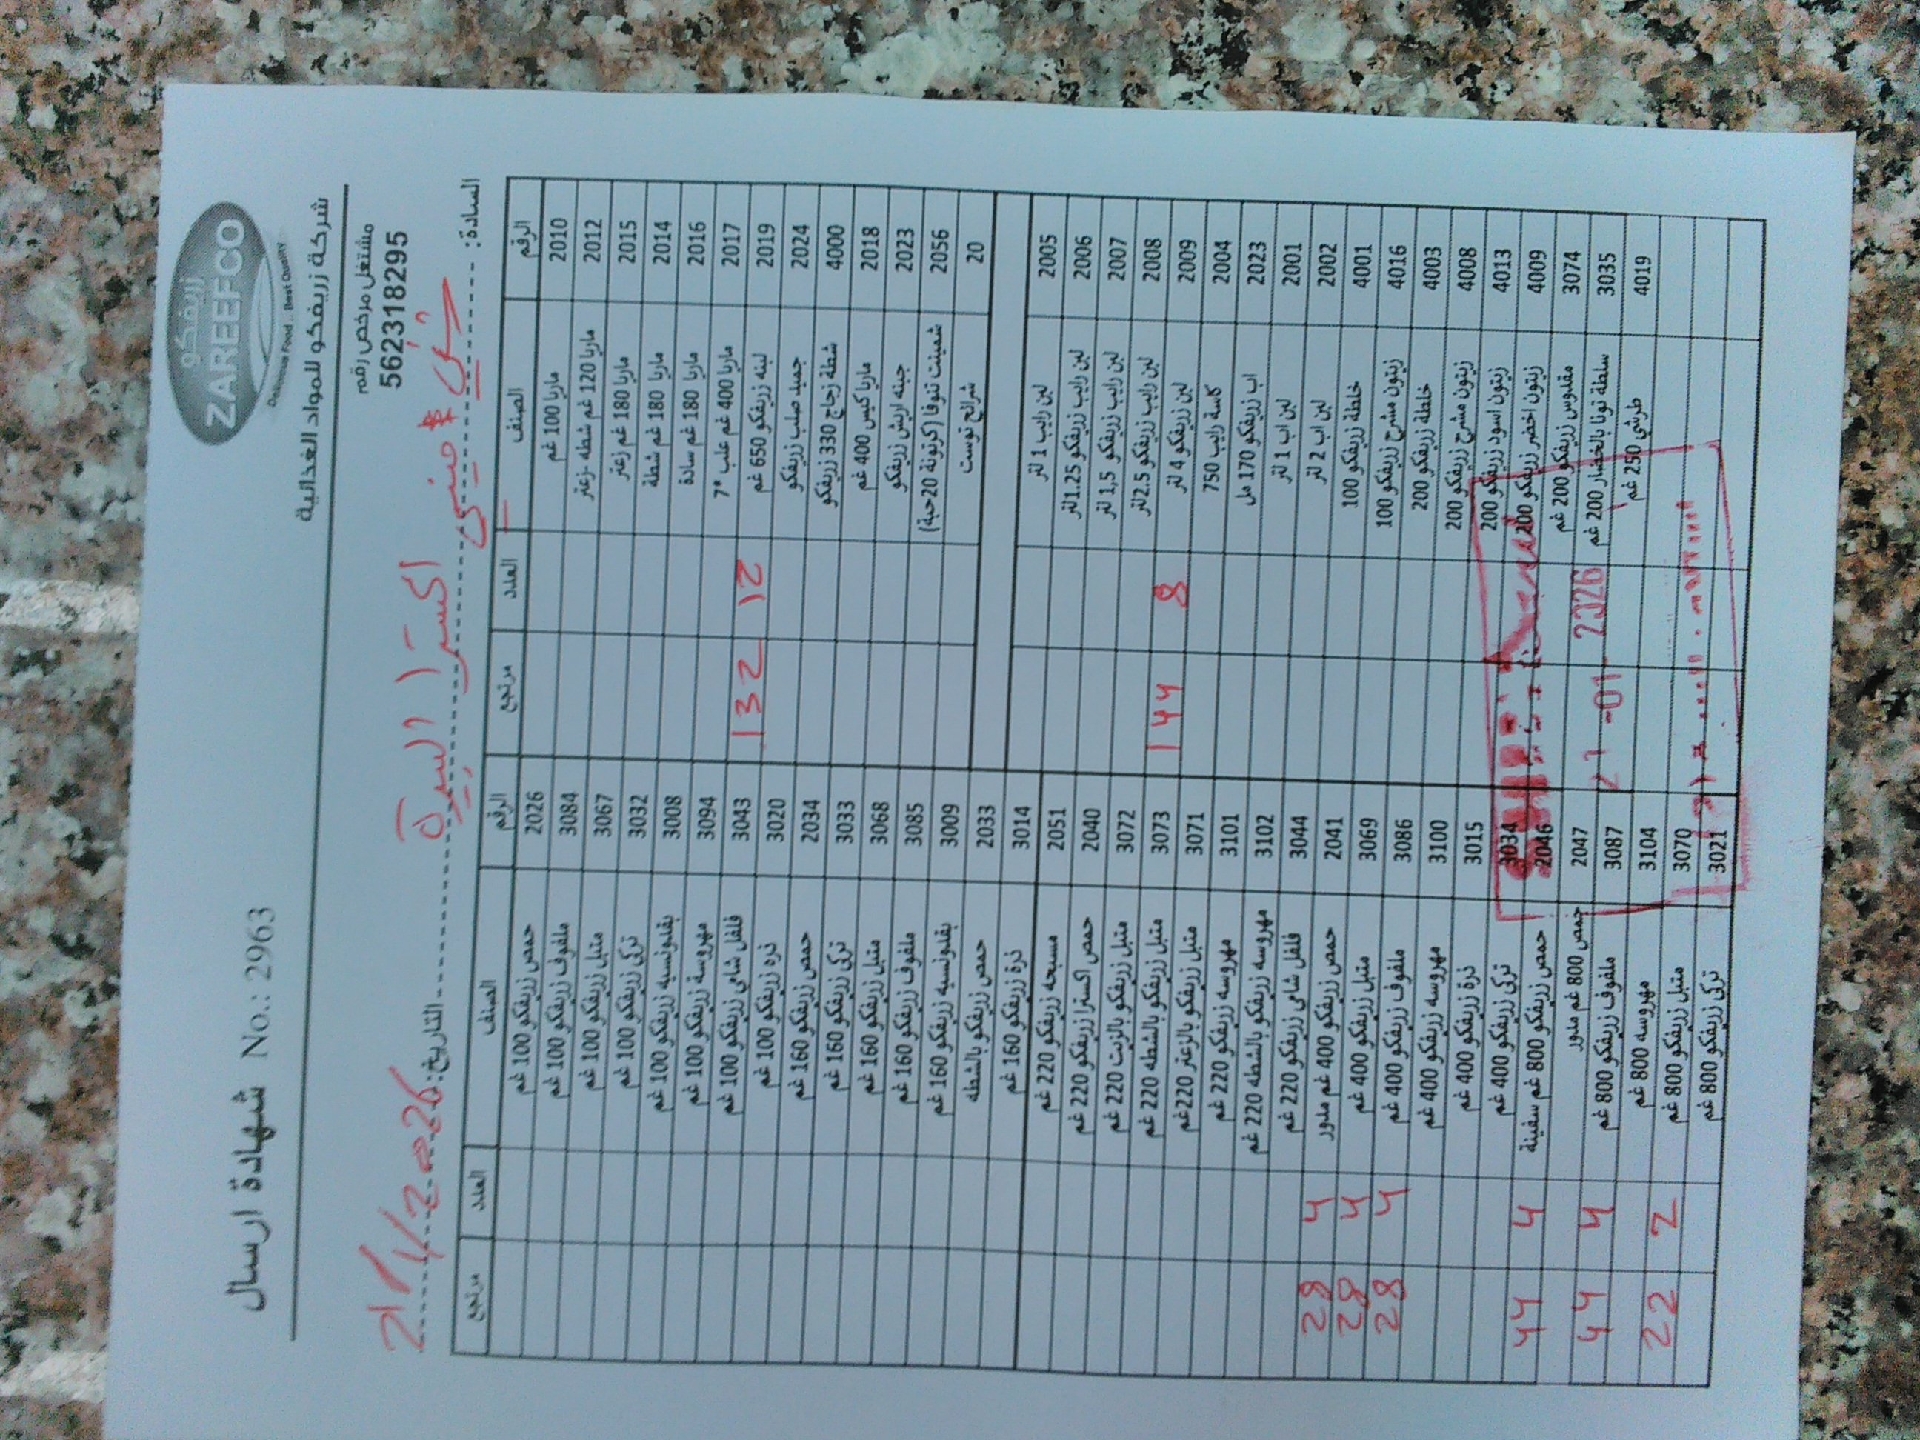 زريفكو
ZAREEFCO
Delicious Food.. Best Quality
شركة زريفكو للمواد الغذائية
شهادة ارسال No.: 2963
مشتغل مرخص رقم
562318295
السادة: اكسترا
التاريخ: 21/1/2026
الرقم الصنف العدد مرتجع الرقم الصنف العدد مرتجع
2010 ماريا 100 غم 2026 حمص زريفكو 100 غم
2012 ماريا 120 غم شطه -زعتر 3084 ملفوف زريفكو 100 غم
2015 ماريا 180 غم زعتر 3067 متبل زريفكو 100 غم
2014 ماريا 180 غم شطة 3032 تركي زريفكو 100 غم
2016 ماريا 180 غم سادة 3008 بقدونسيه زريفكو 100 غم
2017 ماريا 400 غم علب *7 3094 مهروسة زريفكو 100 غم
2019 لبنه زريفكو 650 غم 12 132 3043 فلفل شامي زريفكو 100 غم
2024 جميد صلب زريفكو 3020 ذرة زريفكو 100 غم
4000 شطة زجاج 330 زريفكو 2034 حمص زريفكو 160 غم
2018 ماريا كيس 400 غم 3033 تركي زريفكو 160 غم
2023 جبنه اريش زريفكو 3068 متبل زريفكو 160 غم
2056 شمينت تنوفا (كرتونة 20حبة) 3085 ملفوف زريفكو 160 غم
20 شرائح توست 3009 بقدونسيه زريفكو 160 غم
2033 حمص زريفكو بالشطه
3014 ذرة زريفكو 160 غم
2005 لبن رايب 1 لتر 2051 مسبحه زريفكو 220 غم
2006 لبن رايب زريفكو 1.25لتر 2040 حمص اكسترا زريفكو 220 غم
2007 لبن رايب زريفكو 1,5 لتر 3072 متبل زريفكو بالزيت 220 غم
2008 لبن رايب زريفكو 2.5لتر 3073 متبل زريفكو بالشطه 220 غم
2009 لبن زريفكو 4 لتر 8 144 3071 متبل زريفكو بالزعتر 220غم
2004 كاسة رايب 750 3101 مهروسه زريفكو 220 غم
2023 اب زريفكو 170 مل 3102 مهروسه زريفكو بالشطه 220 غم
2001 لبن اب 1 لتر 3044 فلفل شامي زريفكو 220 غم
2002 لبن اب 2 لتر 2041 حمص زريفكو 400 غم مدور 4 28
4001 خلطة زريفكو 100 3069 متبل زريفكو 400 غم 4 28
4016 زيتون مشرح زريفكو 100 3086 ملفوف زريفكو 400 غم 4 28
4003 خلطة زريفكو 200 3100 مهروسه زريفكو 400 غم
4008 زيتون مشرح زريفكو 200 3015 ذرة زريفكو 400 غم
4013 زيتون اسود زريفكو 200 3034 تركي زريفكو 400 غم
4009 زيتون اخضر زريفكو 200 2046 حمص زريفكو 800 غم سفينة 4 44
3074 مقدوس زريفكو 200 غم 2047 حمص 800 غم مدور
3035 سلطة تونا بالخضار 200 غم 3087 ملفوف زريفكو 800 غم 4 44
4019 طرشي 250 غم 3104 مهروسه 800 غم
3070 متبل زريفكو 800 غم 2 22
3021 تركي زريفكو 800 غم
21 -01- 2026